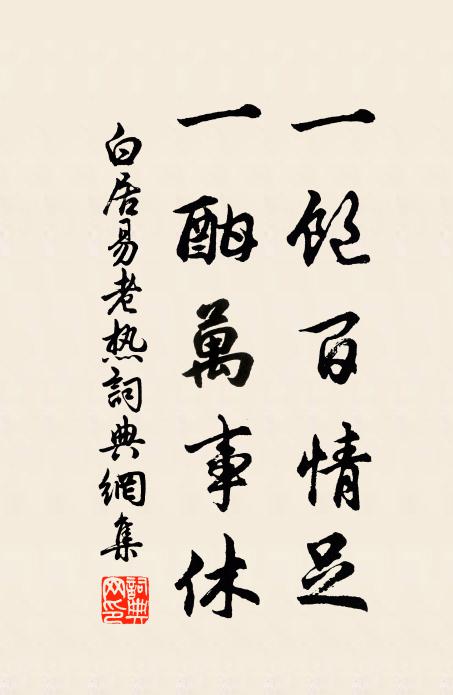 一飽百情足
一酣萬事休
白居易老热詞典網集
詞典网印